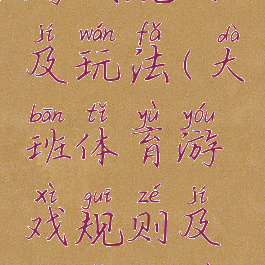 jí wán fǎ dà
及玩法(大
bān tǐ yù yóu
班体育游
xì guī zé jí
戏规则及